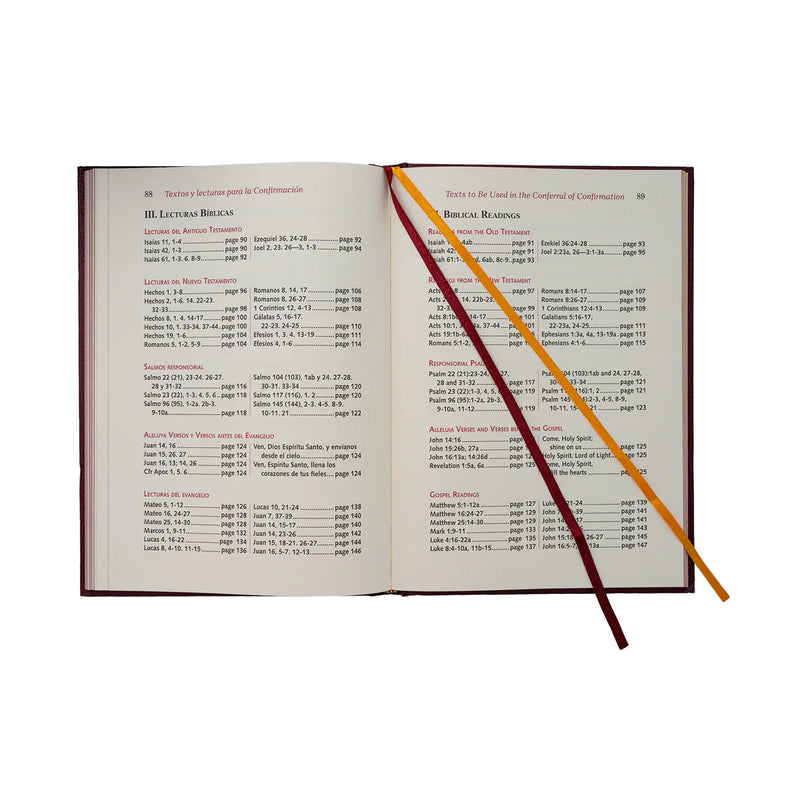 88 Textos y lecturas para la Confirmación
III. Lecturas Bíblicas
Lecturas del Antiguo Testamento
Isaías 11, 1-4 page 90
Isaías 42, 1-3 page 90
Isaías 61, 1-3. 6. 8-9 page 92
Ezequiel 36, 24-28 page 92
Joel 2, 23. 26—3, 1-3 page 94
Lecturas del Nuevo Testamento
Hechos 1, 3-8 page 96
Hechos 2, 1-6. 14. 22-23.
32-33 page 98
Hechos 8, 1. 4. 14-17 page 100
Hechos 10, 1. 33-34. 37-44 page 100
Hechos 19, 1-6 page 104
Romanos 5, 1-2, 5-9 page 104
Romanos 8, 14, 17 page 106
Romanos 8, 26-27 page 108
1 Corintios 12, 4-13 page 108
Gálatas 5, 16-17.
22-23. 24-25 page 110
Efesios 1, 3. 4. 13-19 page 111
Efesios 4, 1-6 page 114
Salmos responsorial
Salmo 22 (21), 23-24. 26-27.
28 y 31-32 page 116
Salmo 23 (22), 1-3. 4. 5. 6 page 118
Salmo 96 (95), 1-2a. 2b-3.
9-10a page 118
Salmo 104 (103), 1ab y 24. 27-28.
30-31. 33-34 page 120
Salmo 117 (116), 1. 2 page 120
Salmo 145 (144), 2-3. 4-5. 8-9.
10-11. 21 page 122
Aleluya Versos y Versos antes del Evangelio
Juan 14, 16 page 124
Juan 15, 26. 27 page 124
Juan 16, 13; 14, 26 page 124
Cfr Apoc 1, 5. 6 page 124
Ven, Dios Espíritu Santo, y envianos
desde el cielo page 124
Ven, Espíritu Santo, llena los
corazones de tus fieles page 124
Lecturas del evangelio
Mateo 5, 1-12 page 126
Mateo 16, 24-27 page 128
Mateo 25, 14-30 page 128
Marcos 1, 9-11 page 132
Lucas 4, 16-22 page 134
Lucas 8, 4-10. 11-15 page 136
Lucas 10, 21-24 page 138
Juan 7, 37-39 page 140
Juan 14, 15-17 page 140
Juan 14, 23-26 page 142
Juan 15, 18-21. 26-27 page 144
Juan 16, 5-7. 12-13 page 146
Texts to Be Used in the Conferral of Confirmation 89
Biblical Readings
Readings from the Old Testament
Isaiah page 91
Isaiah page 91
Isaiah 61:1- 6ab, 8c-9 page 93
Ezekiel 36:24-28 page 93
Joel 2:23a, 26—3:1-3a page 95
Readings from the New Testament
Acts page 97
Acts 22b-23,
page 99
Acts page 101
Acts 10:1, 37-44 page 101
Acts 19:1b-6 page 105
Romans 5:1-2 page 105
Romans 8:14-17 page 107
Romans 8:26-27 page 109
1 Corinthians 12:4-13 page 109
Galatians 5:16-17,
22-23a, 24-25 page 111
Ephesians 1:3a, 4a, 13-19a page 113
Ephesians 4:1-6 page 115
Responsorial
Psalm 22 (21):23-24, 27,
28 and 31-32 page 117
Psalm 23 (22):1-3, 4, 5, page 119
Psalm 96 (95):1-2a,
9-10a, 11-12 page 119
Psalm 104 (103):1ab and 24, 27-28,
30-31, 33-34 page 121
Psalm 117 page 121
Psalm 145 2-3, 4-5, 8-9,
10-11, page 123
Alleluia Verses and Verses before the Gospel
John 14:16 page 125
John 15:26b, 27a page 125
John 16:13a; 14:26d page 125
Revelation 1:5a, 6a page 125
Come, Holy Spirit;
shine on us page 125
Holy Spirit, Lord of Light page 125
Come, Holy Spirit,
the hearts page 125
Gospel Readings
Matthew 5:1-12a page 127
Matthew 16:24-27 page 129
Matthew 25:14-30 page 129
Mark 1:9-11 page 133
Luke 4:16-22a page 135
Luke 8:4-10a, 11b-15 page 137
Luke 21-24 page 139
John 7 page 141
John 14:15 page 141
John 14:23-26 page 143
John 15:18 26-27 page 145
John 16:5-7, page 147